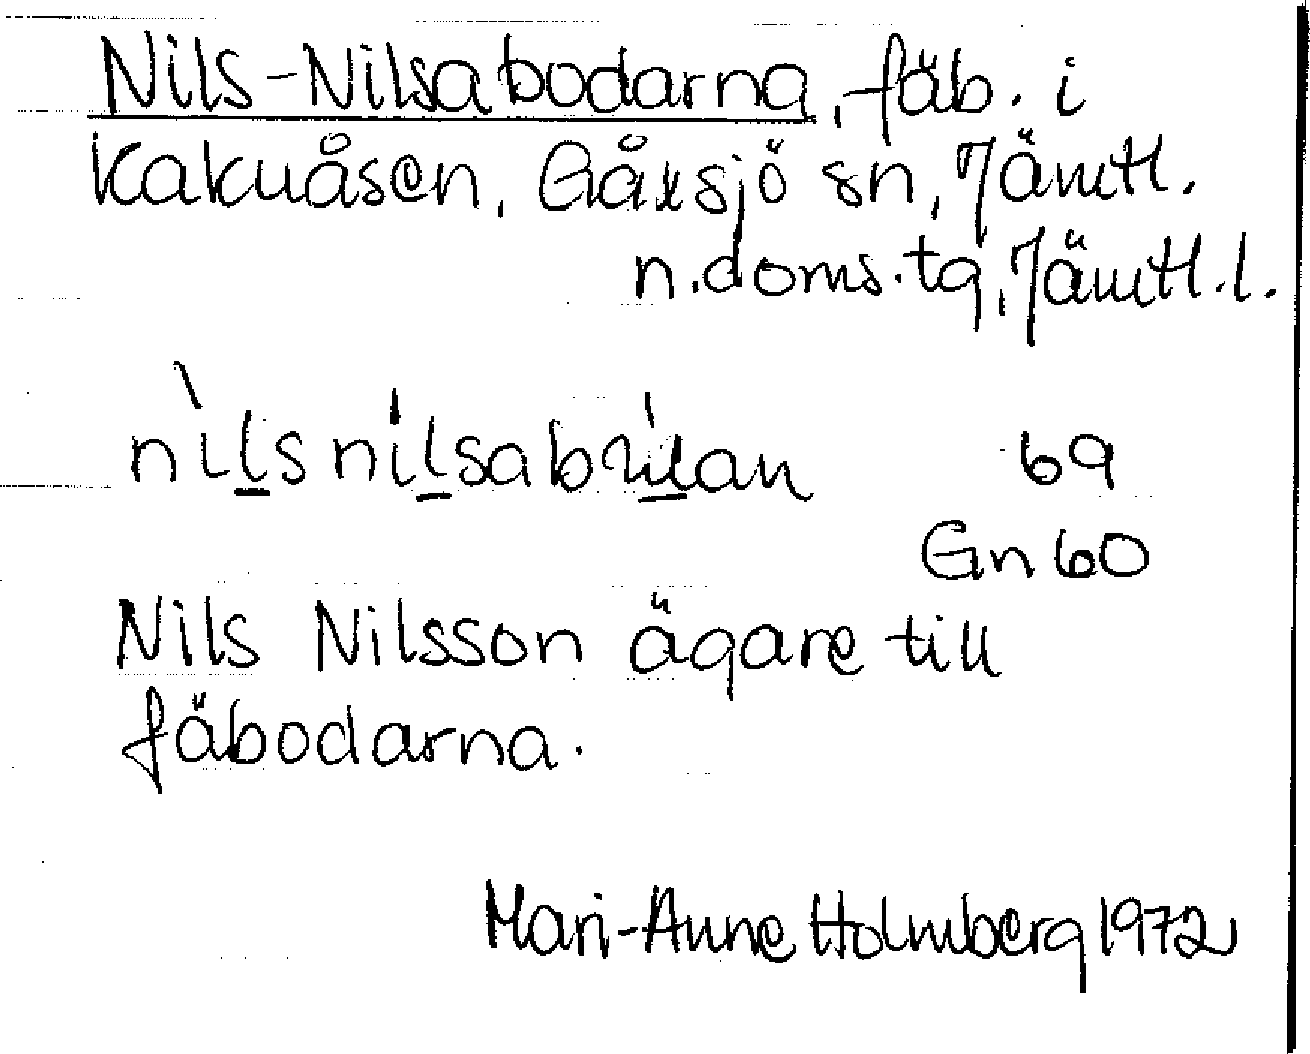 Nils-Nilsabodarna, fäb. i
Kakuåsen, Gåxsjö sn, Jämtl.
n.doms.tg, Jämtl.l.
69
Gn 60
Nils Nilsson ägare till
fäbodarna.
Mari-Anne Holmberg 1972